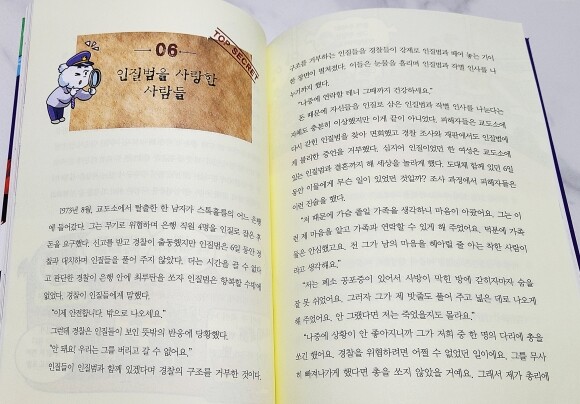 06
TOP SECRET
인질범을 사랑한
사람들
1973년 8월, 교도소에서 탈출한 한 남자가 스톡홀름의 어느 은행
에 들어갔다. 그는 무기로 위협하며 은행 직원 4명을 인질로 잡은 후
돈을 요구했다. 신고를 받고 경찰이 출동했지만 인질범은 6일 동안 경
찰과 대치하며 인질들을 풀어 주지 않았다. 더는 시간을 끌 수 없다
고 판단한 경찰이 은행 안에 최루탄을 쏘자 인질범은 항복할 수밖에
없었다. 경찰이 인질들에게 말했다.
"이제 안전합니다. 밖으로 나오세요."
그런데 경찰은 인질들이 보인 뜻밖의 반응에 당황했다.
"안 돼요! 우리는 그를 버리고 갈 수 없어요."
인질들이 인질범과 함께 있겠다며 경찰의 구조를 거부한 것이다.
구조를 거부하는 인질들을 경찰들이 강제로 인질범과 떼어 놓는 기이
한 장면이 펼쳐졌다. 이들은 눈물을 흘리며 인질범과 작별 인사를 나
누기까지 했다.
"나중에 연락할 테니 그때까지 건강하세요."
돈 때문에 자신들을 인질로 삼은 인질범과 작별 인사를 나눈다는
자체도 충분히 이상했지만 이게 끝이 아니었다. 피해자들은 교도소에
다시 갇힌 인질범을 찾아 면회했고 경찰 조사와 재판에서도 인질범에
게 불리한 증언을 거부했다. 심지어 인질이었던 한 여성은 교도소에
있는 인질범과 결혼까지 해 세상을 놀라게 했다. 도대체 함께 있던 6일
동안 이들에게 무슨 일이 있었던 것일까? 조사 과정에서 피해자들은
이런 진술을 했다.
"저 때문에 가슴 졸일 가족을 생각하니 마음이 아팠어요. 그는 이
런 제 마음을 알고 가족과 연락할 수 있게 해 주었어요. 덕분에 가족
들은 안심했고요. 전 그가 남의 마음을 헤아릴 줄 아는 착한 사람이
라고 생각해요."
"저는 폐소 공포증이 있어서 사방이 막힌 방에 갇히자마자 숨을
잘 못 쉬었어요. 그러자 그가 제 밧줄도 풀어 주고 넓은 데로 나오게
해 주었어요. 안 그랬다면 저는 죽었을지도 몰라요."
"나중에 상황이 안 좋아지니까 그가 저희 중 한 명의 다리에 총을
쏘긴 했어요. 경찰을 위협하려면 어쩔 수 없었던 일이에요. 그를 무사
히 빠져나가게 했다면 총을 쏘지 않았을 거예요. 그래서 제가 총리에